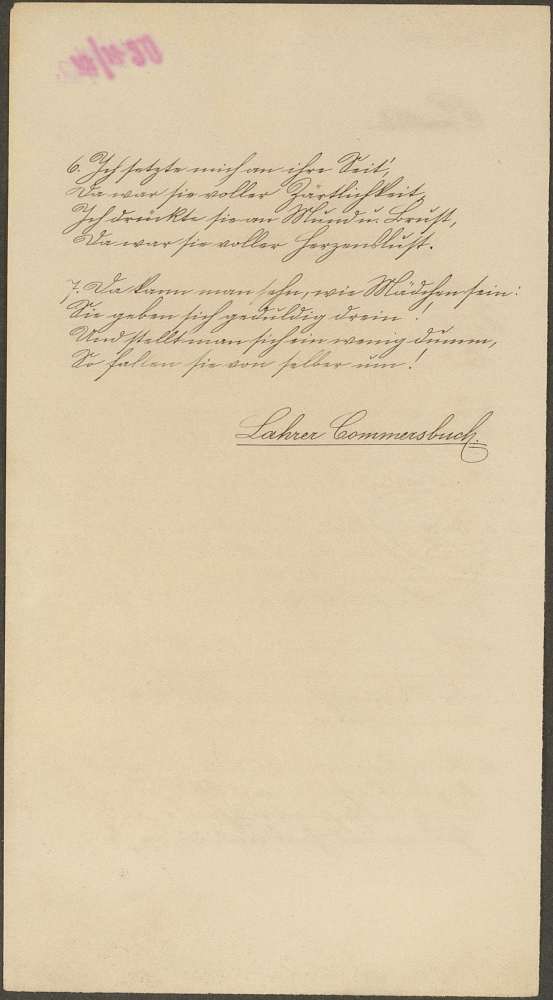 6. Ich setzte mich an ihre Seit',
Da war sie voller Zärtlichkeit,
Ich drückte sie an Mund u. Brust,
Da war sie voller Herzenslust.
7. Da kann man sehn, wie Mädchen sein:
Sie geben sich geduldig drein!
Und stellt man sich ein wenig dumm,
So fallen sie von selber um!
Lahrer Commersbuch.